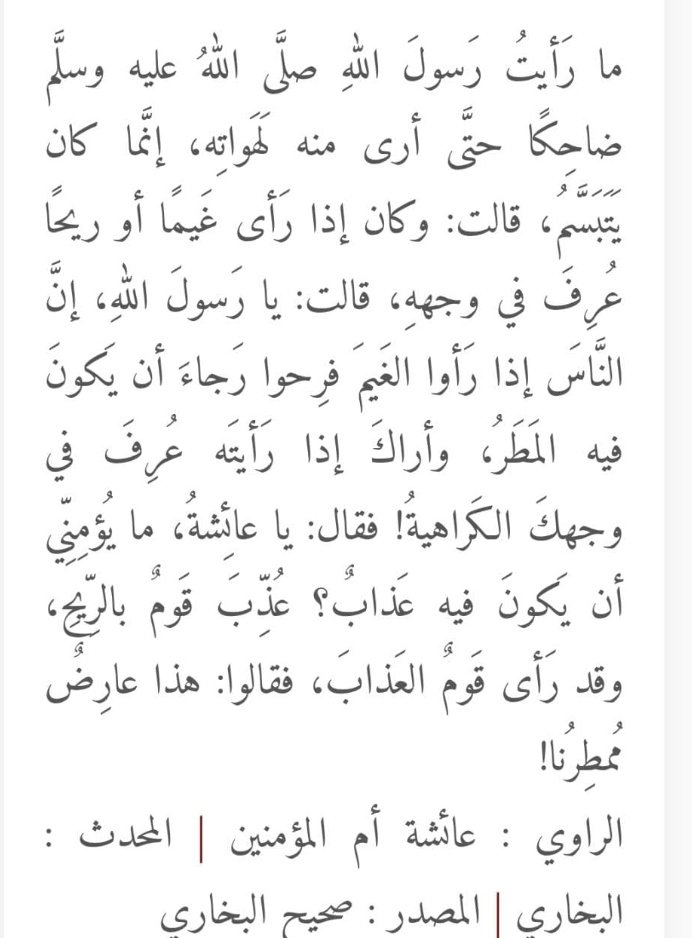 ما رَأيتُ رَسولَ اللهِ صلَّى اللهُ عليه وسلَّم
ضاحِكًا حتَّى أرى منه لَهَواتِه، إنَّما كان
يَتَبَسَّمُ، قالت: وكان إذا رَأى غَيمًا أو ريحًا
عُرِفَ في وجههِ، قالت: يا رَسولَ اللهِ، إنَّ
النَّاسَ إذا رَأوا الغَيمَ فرِحوا رَجاءَ أن يَكونَ
فيه المَطَرُ، وأراكَ إذا رَأيتَه عُرِفَ في
وجهكَ الكَراهيةُ! فقال: يا عائِشةُ، ما يُؤمِنِّي
أن يَكونَ فيه عَذابٌ؟ عُذِّبَ قَومٌ بالرِّيحِ،
وقد رَأى قَومٌ العَذابَ، فقالوا: هذا عارِضٌ
مُمطِرُنا!
الراوي : عائشة أم المؤمنين | المحدث :
البخاري | المصدر : صحيح البخاري